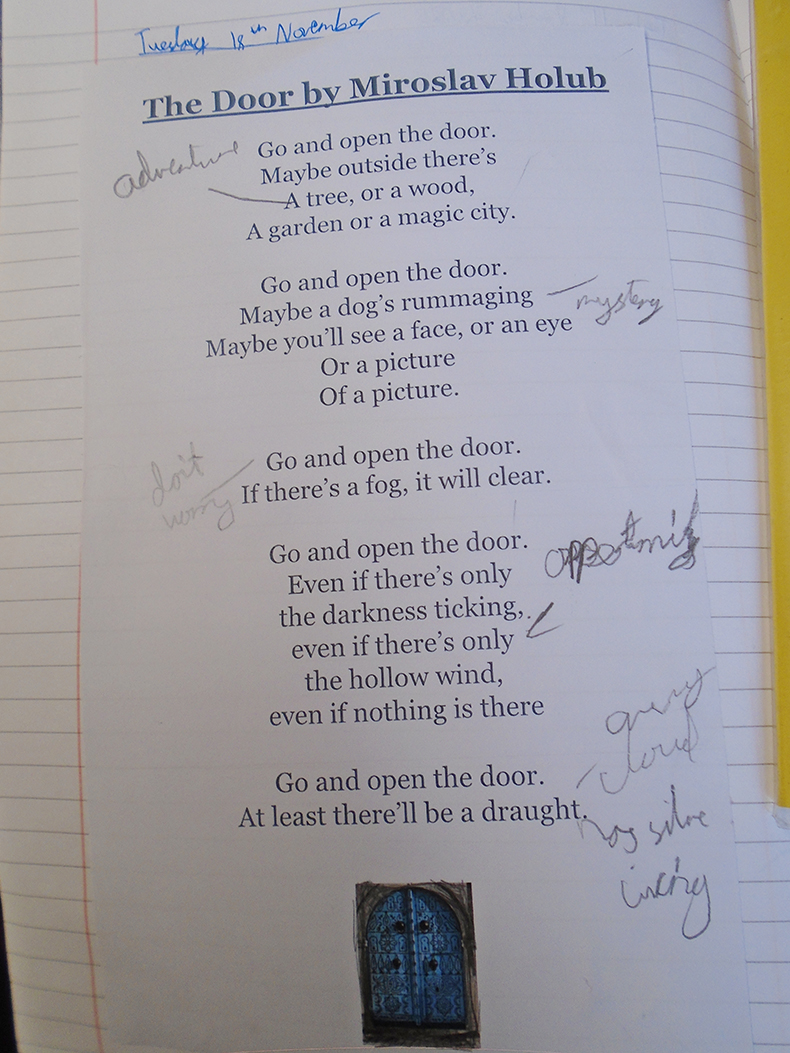 Tuesday 18th November
The Door by Miroslav Holub
adventure
Go and open the door.
Maybe outside there's
A tree, or a wood,
A garden or a magic city.
Go and open the door.
Maybe a dog's rummaging
mystery
Maybe you'll see a face, or an eye
Or a picture
Of a picture.
don't
worry
Go and open the door.
If there's a fog, it will clear.
Go and open the door.
opportunity
Even if there's only
the darkness ticking,
even if there's only
the hollow wind,
even if nothing is there
Go and open the door.
At least there'll be a draught.
cloud